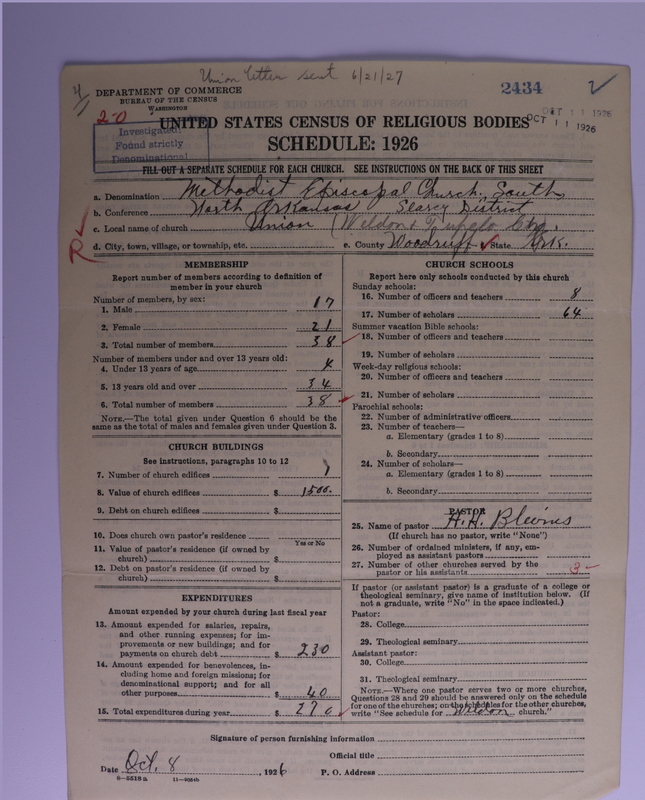 Union letter sent 6/21/27
2434
DEPARTMENT OF COMMERCE
BUREAU OF THE CENSUS
WASHINGTON
2-0
OCT 11 1926
OCT 11 1926
UNITED STATES CENSUS OF RELIGIOUS BODIES
SCHEDULE: 1926
Investigated:
Found strictly
Denominational
FILL OUT A SEPARATE SCHEDULE FOR EACH CHURCH. SEE INSTRUCTIONS ON THE BACK OF THIS SHEET
a. Denomination Methodist Episcopal Church, South
b. Conference North Arkansas Searcy District
c. Local name of church Union (Weldon & Tupelo Chg.
d. City, town, village, or township, etc. e. County Woodruff State Ark.
R
MEMBERSHIP
Report number of members according to definition of
member in your church
Number of members, by sex:
1. Male 17
2. Female 21
3. Total number of members 38
Number of members under and over 13 years old:
4. Under 13 years of age 4
5. 13 years old and over 34
6. Total number of members 38
NOTE.—The total given under Question 6 should be the
same as the total of males and females given under Question 3.
CHURCH BUILDINGS
See instructions, paragraphs 10 to 12
7. Number of church edifices 1
8. Value of church edifices $ 1500.
9. Debt on church edifices $
10. Does church own pastor's residence
Yes or No
11. Value of pastor's residence (if owned by
church) $
12. Debt on pastor's residence (if owned by
church) $
EXPENDITURES
Amount expended by your church during last fiscal year
13. Amount expended for salaries, repairs,
and other running expenses; for im-
provements or new buildings; and for
payments on church debt $ 230
14. Amount expended for benevolences, in-
cluding home and foreign missions; for
denominational support; and for all
other purposes $ 40
15. Total expenditures during year $ 270
CHURCH SCHOOLS
Report here only schools conducted by this church
Sunday schools:
16. Number of officers and teachers 8
17. Number of scholars 64
Summer vacation Bible schools:
18. Number of officers and teachers
19. Number of scholars
Week-day religious schools:
20. Number of officers and teachers
21. Number of scholars
Parochial schools:
22. Number of administrative officers
23. Number of teachers—
a. Elementary (grades 1 to 8)
b. Secondary
24. Number of scholars—
a. Elementary (grades 1 to 8)
b. Secondary
PASTOR
25. Name of pastor H. H. Blevins
(If church has no pastor, write "None")
26. Number of ordained ministers, if any, em-
ployed as assistant pastors
27. Number of other churches served by the
pastor or his assistants 3-
If pastor (or assistant pastor) is a graduate of a college or
theological seminary, give name of institution below. (If
not a graduate, write "No" in the space indicated.)
Pastor:
28. College
29. Theological seminary
Assistant pastor:
30. College
31. Theological seminary
NOTE.—Where one pastor serves two or more churches,
Questions 28 and 29 should be answered only on the schedule
for one of the churches; on the schedules for the other churches,
write "See schedule for Weldon church."
Signature of person furnishing information
Official title
Date Oct. 8, 1926 P. O. Address
8-5518a 11-9554b